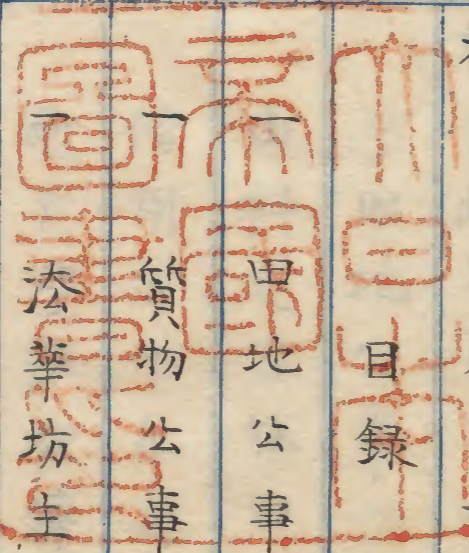 目録
一 田地公事
一 質物公事
一 法華坊主